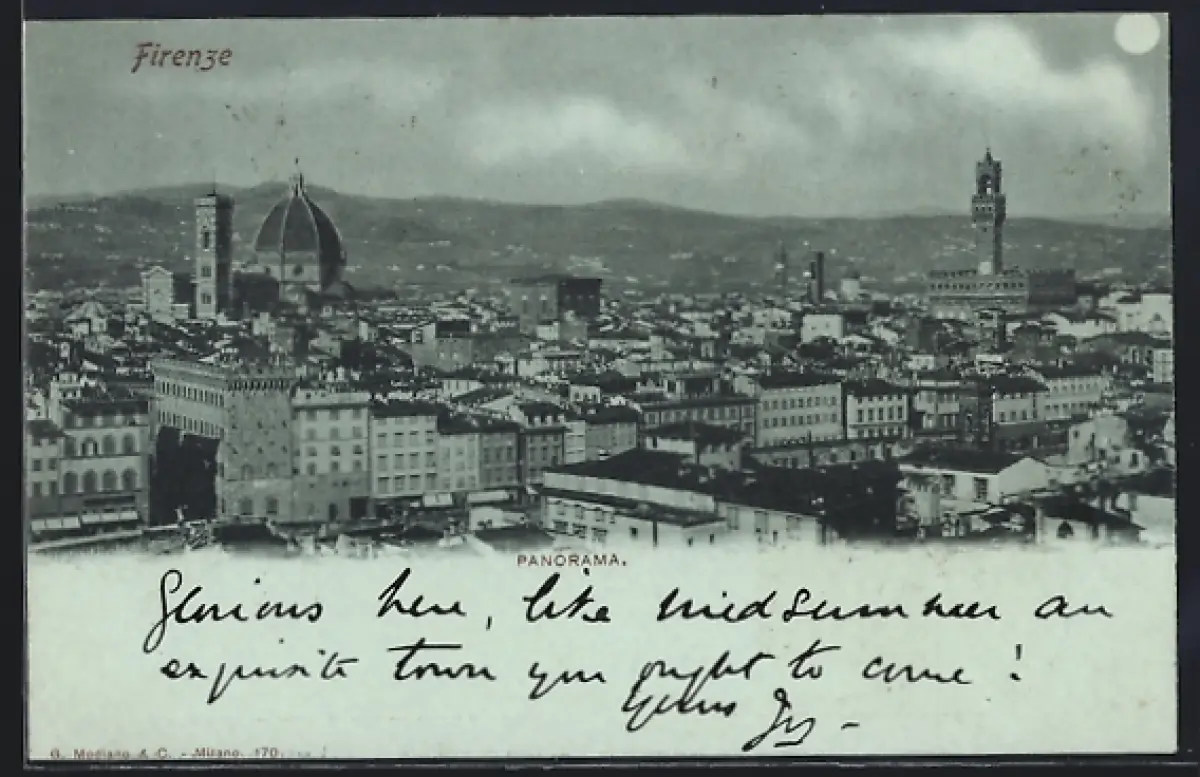 Firenze
PANORAMA.
Glorious here, like midsummer an
exquisite town you ought to come!
Yours
G. Modiano & C. - Milano. 170.